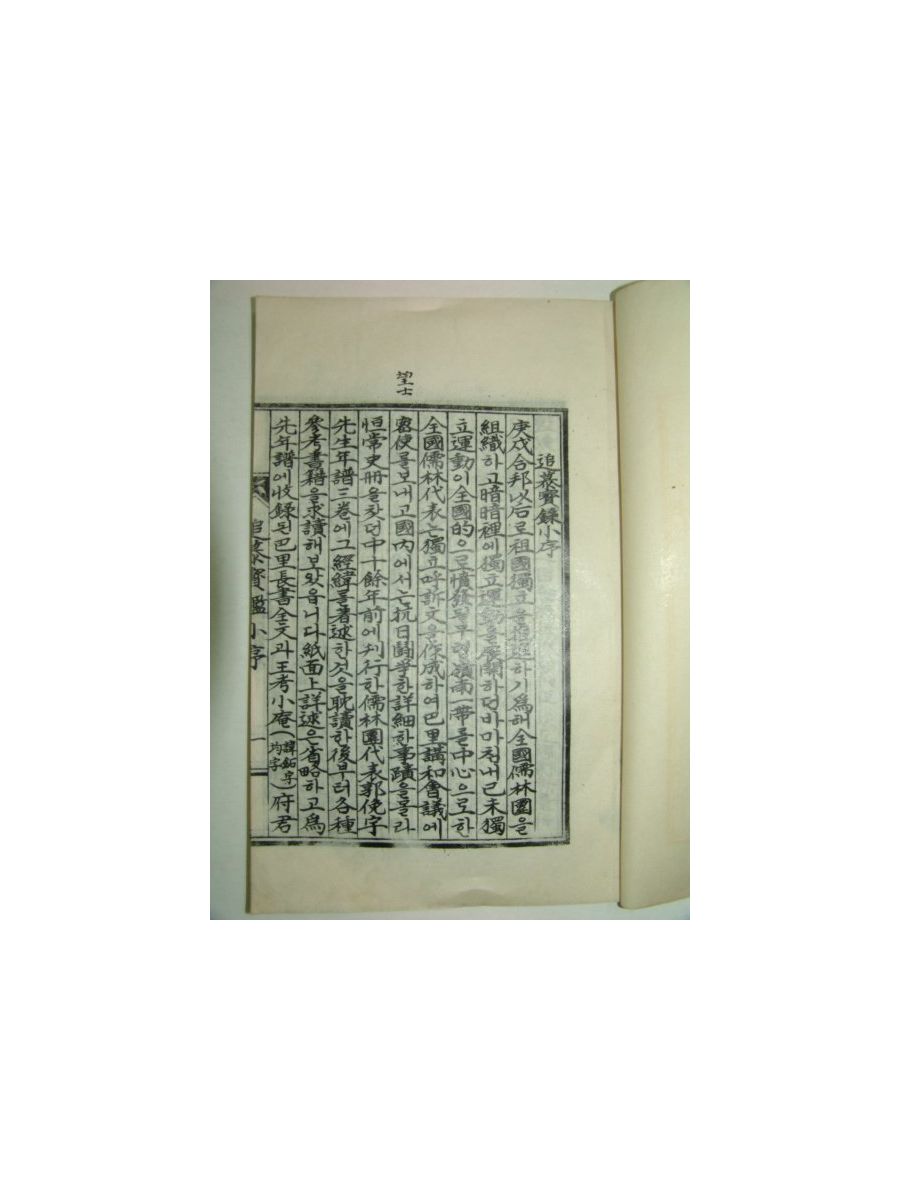 望士
追慕寶錄小序
庚戌合邦以后로祖國獨立을推進하기爲해全國儒林團을
組織하고暗暗裡에獨立運動을展開하던바마침내己未獨
立運動이全國的으로憤發될무렵嶺南一帶를中心으로한
全國儒林代表는獨立呼訴文을作成하여巴里講和會議에
密使를보내고國內에서는抗日鬪爭한詳細한事蹟을몰라
恒常史冊을찾던中十餘年前에刊行한儒林團代表郭俛宇
先生年譜三卷에그經緯를著述한것을耽讀한後부터各種
參考書籍을求讀해보왓읍니다紙面上詳述은省略하고爲
先年譜에收錄된巴里長書全文과王考小庵(諱鈺字均字)府君
追慕寶鑑小序 一